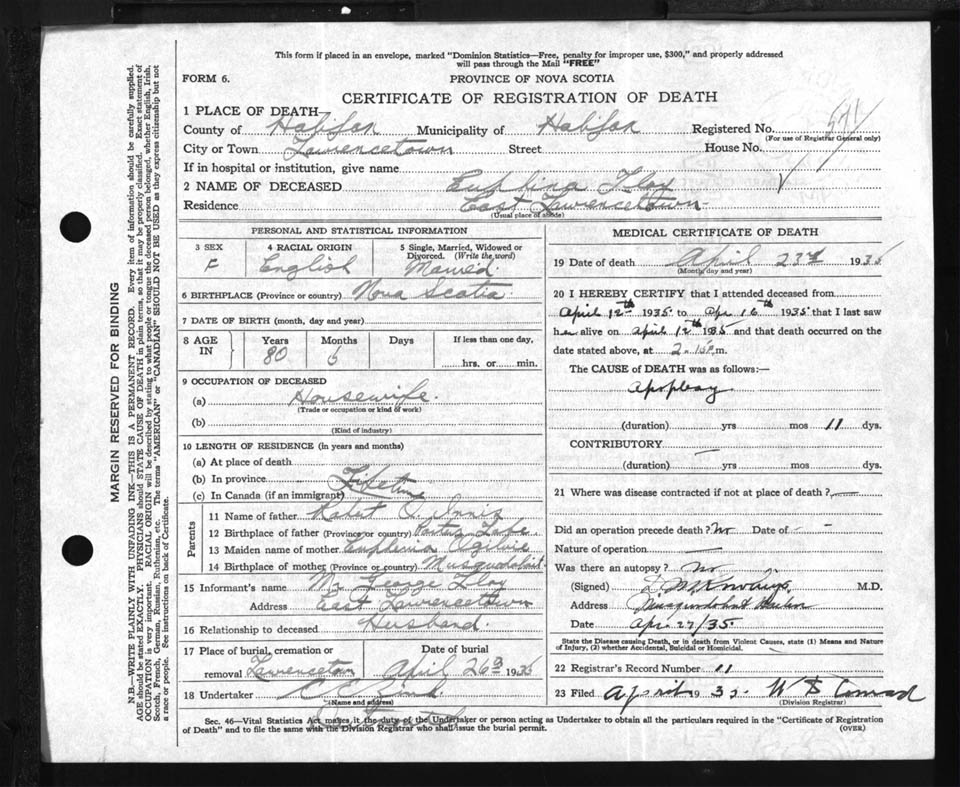 This form if placed in an envelope, marked "Dominion Statistics—Free, penalty for improper use, $300," and properly addressed
will pass through the Mail "FREE"
FORM 6.
PROVINCE OF NOVA SCOTIA
CERTIFICATE OF REGISTRATION OF DEATH
1 PLACE OF DEATH—
County of Halifax Municipality of Halifax Registered No. 541
(For use of Registrar General only)
City or Town Lawrencetown Street House No.
If in hospital or institution, give name
2 NAME OF DECEASED
Residence East Lawrencetown
(Usual place of abode)
PERSONAL AND STATISTICAL INFORMATION
3 SEX 4 RACIAL ORIGIN 5 Single, Married, Widowed or
Divorced. (Write the word)
F English Married.
6 BIRTHPLACE (Province or country) Nova Scotia
7 DATE OF BIRTH (month, day and year)
8 AGE IN Years Months Days If less than one day,
80 5 hrs. or min.
9 OCCUPATION OF DECEASED
(a) Housewife.
(Trade or occupation or kind of work)
(b)
(Kind of industry)
10 LENGTH OF RESIDENCE (in years and months)
(a) At place of death
(b) In province Lifetime
(c) In Canada (if an immigrant)
Parents
11 Name of father Innis
12 Birthplace of father (Province or country) Porters Lake
13 Maiden name of mother Euphemia Ogilvie
14 Birthplace of mother (Province or country) Musquodoboit
15 Informant's name Mr George
Address East Lawrencetown
16 Relationship to deceased Husband.
17 Place of burial, cremation or Date of burial
removal Lawrencetown April 26 1935
18 Undertaker
(Name and address)
MEDICAL CERTIFICATE OF DEATH
19 Date of death April 23rd 1935
(Month, day and year)
20 I HEREBY CERTIFY that I attended deceased from
April 12th 1935 to Apr 16th 1935 that I last saw
her alive on April 12th 1935 and that death occurred on
date stated above, at 2.15 P.m.
The CAUSE of DEATH was as follows:—
Apoplexy
(duration) yrs mos 11 dys.
CONTRIBUTORY —
(duration) yrs mos dys.
21 Where was disease contracted if not at place of death? —
Did an operation precede death? No Date of — -
Nature of operation —
Was there an autopsy? No
(Signed) M.D.
Address Musquodoboit Harbor
Date Apr 27/35
State the Disease causing Death, or in death from Violent Causes, state (1) Means and Nature
of Injury, (2) whether Accidental, Suicidal or Homicidal.
22 Registrar's Record Number 11
23 Filed April 1935 W S Conrad
(Division Registrar)
Sec. 46—Vital Statistics Act makes it the duty of the Undertaker or person acting as Undertaker to obtain all the particulars required in the "Certificate of Registration
of Death" and to file the same with the Division Registrar who shall issue the burial permit.
(OVER)
MARGIN RESERVED FOR BINDING
N.B.—WRITE PLAINLY WITH UNFADING INK—THIS IS A PERMANENT RECORD. Every item of information should be carefully supplied.
AGE should be stated EXACTLY. PHYSICIANS should STATE CAUSE OF DEATH in plain terms, so that it may be properly classified. Exact statement of
OCCUPATION is very important. RACIAL ORIGIN will be described by stating to what people or tongue the deceased person belonged, whether English, Irish,
Scotch, French, German, Russian, Ruthenian, etc. The terms "AMERICAN" or "CANADIAN" SHOULD NOT BE USED as they express citizenship but not
a race or people. See instructions on back of Certificate.